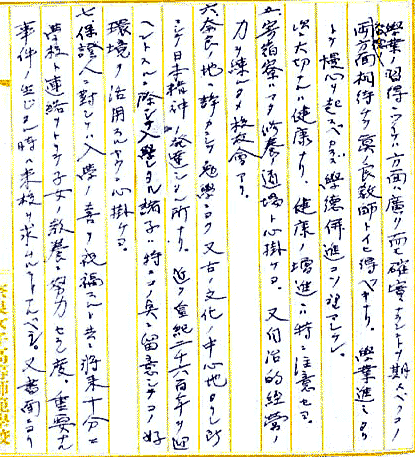 学業ノ習得ニツキテハ方面ハ廣ク而モ確實ナラントヲ期スベク
両方面相待チテ眞ノ良教師トイヒ得ベキナリ。學業進ミタリ
トテ慢心ヲ起スベカラズ學德併進コソ望マシケレ。
次ニ大切ナルハ健康ナリ、健康ノ増進ニハ特ニ注意セヨ。
五、寄宿寮ハマタ修養ノ道場ト心掛ケヨ。又自治的經營ノ
力ヲ練ルタメ校友會アリ。
六、奈良ノ地ハ靜カニシテ勉學ニヨク又古ノ文化ノ中心地タリシ所
ニシテ日本精神ノ發達シタル所ナリ。近ク皇紀二千六百年ヲ迎
ヘントスル際ニ入學シタル諸子ハ特ニコノ點ニ留意シテコノ好
環境ヲ活用スルヤウ心掛ケヨ。
七、保證人ニ對シテハ入學ノ喜ヲ祝福スルト共ニ將來十分ニ
學校ト連絡ヲトリテ子女ノ教養ニ努力セラレ度。重要ナル
事件ノ生ジタル時ハ来校ヲ求ムルコトアルベシ。又書面ニヨリ
奈良女子高等師範學校